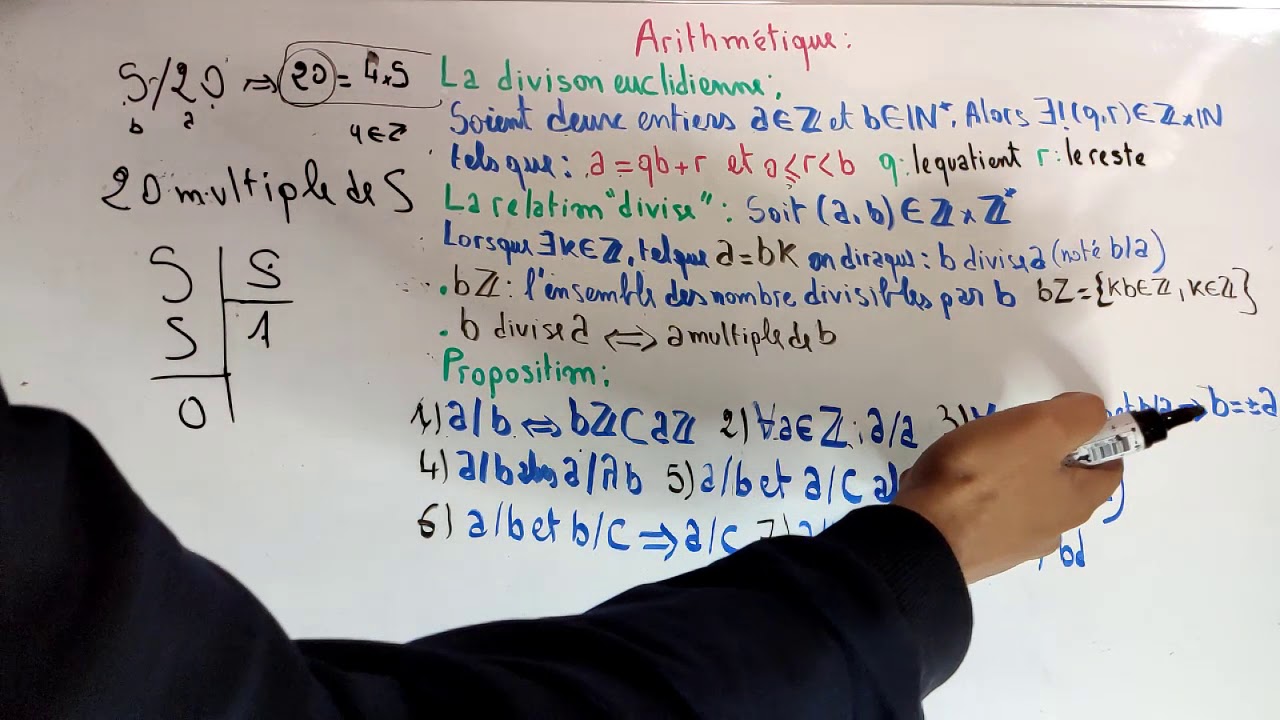 Arithmétique:
5/20 ⇒ 20 = 4×5
b a
4∈ℤ
20 multiple de 5
5 | 5
5 | 1
0
La divison euclidienne:
Soient deux entiers a∈ℤ et b∈ℕ*. Alors ∃!(q,r)∈ℤ×ℕ
tels que: a=qb+r et 0≤r<b q: le quatient r: le reste
La relation "divise": Soit (a,b)∈ℤ×ℤ*
Lorsque ∃K∈ℤ, tel que a=bK on dira que: b divise a (noté b/a)
. bℤ: l'ensemble des nombre divisibles par b bℤ={Kb∈ℤ, K∈ℤ}
. b divise a ⟺ a multiple de b
Proposition:
1) a/b ⟺ bℤ⊂aℤ 2) ∀a∈ℤ; a/a 3) et b/a ⇒ b=±a
4) a/b alors a/λb 5) a/b et a/c
6) a/b et b/c ⟹ a/c 7) bd